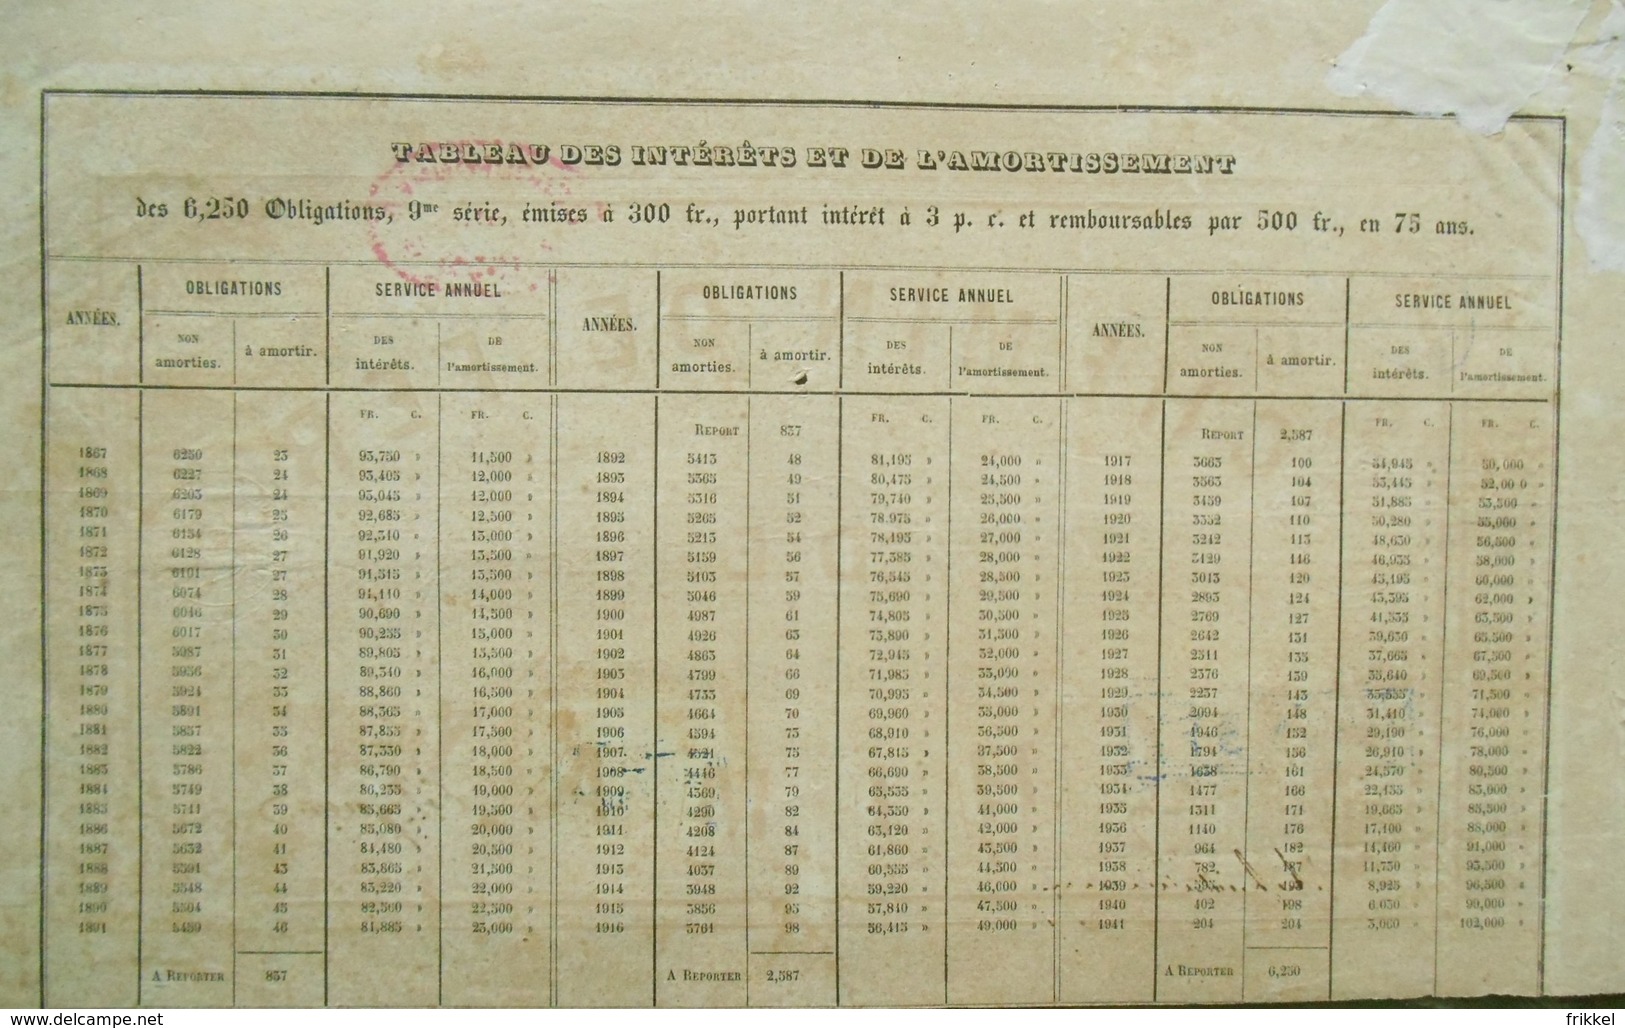 TABLEAU DES INTÉRÊTS ET DE L'AMORTISSEMENT
des 6,250 Obligations, 9me série, émises à 300 fr., portant intérêt à 3 p. c. et remboursables par 500 fr., en 75 ans.
ANNÉES. OBLIGATIONS SERVICE ANNUEL ANNÉES. OBLIGATIONS SERVICE ANNUEL ANNÉES. OBLIGATIONS SERVICE ANNUEL
NON amorties. à amortir. DES intérêts. DE l'amortissement. NON amorties. à amortir. DES intérêts. DE l'amortissement. NON amorties. à amortir. DES intérêts. DE l'amortissement.
FR. C. FR. C. REPORT 837 FR. C. FR. C. REPORT 2,587 FR. C. FR. C.
1867 6250 23 93,750 » 11,500 » 1892 5413 48 81,195 » 24,000 » 1917 3663 100 54,945 » 50,000 »
1868 6227 24 93,405 » 12,000 » 1893 5365 49 80,475 » 24,500 » 1918 3563 104 53,445 » 52,000 »
1869 6203 24 93,045 » 12,000 » 1894 5316 51 79,740 » 25,500 » 1919 3459 107 51,885 » 53,500 »
1870 6179 25 92,685 » 12,500 » 1895 5265 52 78.975 » 26,000 » 1920 3352 110 50,280 » 55,000 »
1871 6154 26 92,310 » 13,000 » 1896 5213 54 78,195 » 27,000 » 1921 3242 113 48,630 » 56,500 »
1872 6128 27 91,920 » 13,500 » 1897 5159 56 77,385 » 28,000 » 1922 3129 116 46,935 » 58,000 »
1873 6101 27 91,515 » 13,500 » 1898 5103 57 76,545 » 28,500 » 1923 3013 120 45,195 » 60,000 »
1874 6074 28 91,110 » 14,000 » 1899 5046 59 75,690 » 29,500 » 1924 2893 124 43,395 » 62,000 »
1875 6046 29 90,690 » 14,500 » 1900 4987 61 74,805 » 30,500 » 1925 2769 127 41,535 » 63,500 »
1876 6017 30 90,255 » 15,000 » 1901 4926 63 73,890 » 31,500 » 1926 2642 131 39,630 » 65,500 »
1877 5987 31 89,805 » 15,500 » 1902 4863 64 72,945 » 32,000 » 1927 2511 135 37,665 » 67,500 »
1878 5956 32 89,340 » 16,000 » 1903 4799 66 71,985 » 33,000 » 1928 2376 139 35,640 » 69,500 »
1879 5924 33 88,860 » 16,500 » 1904 4733 69 70,995 » 34,500 » 1929 2237 143 33,555 » 71,500 »
1880 5891 34 88,365 » 17,000 » 1905 4664 70 69,960 » 35,000 » 1930 2094 148 31,410 » 74,000 »
1881 5857 35 87,855 » 17,500 » 1906 4594 73 68,910 » 36,500 » 1931 1946 152 29,190 » 76,000 »
1882 5822 36 87,330 » 18,000 » 1907 4521 75 67,815 » 37,500 » 1932 1794 156 26,910 » 78,000 »
1883 5786 37 86,790 » 18,500 » 1908 4446 77 66,690 » 38,500 » 1933 1638 161 24,570 » 80,500 »
1884 5749 38 86,235 » 19,000 » 1909 4369 79 65,535 » 39,500 » 1934 1477 166 22,155 » 83,000 »
1885 5711 39 85,665 » 19,500 » 1910 4290 82 64,350 » 41,000 » 1935 1311 171 19,665 » 85,500 »
1886 5672 40 85,080 » 20,000 » 1911 4208 84 63,120 » 42,000 » 1936 1140 176 17,100 » 88,000 »
1887 5632 41 84,480 » 20,500 » 1912 4124 87 61,860 » 43,500 » 1937 964 182 14,460 » 91,000 »
1888 5591 43 83,865 » 21,500 » 1913 4037 89 60,555 » 44,500 » 1938 782 187 11,730 » 93,500 »
1889 5548 44 83,220 » 22,000 » 1914 3948 92 59,220 » 46,000 » 1939 595 193 8,925 » 96,500 »
1890 5504 45 82,560 » 22,500 » 1915 3856 95 57,840 » 47,500 » 1940 402 198 6,030 » 99,000 »
1891 5459 46 81,885 » 23,000 » 1916 3761 98 56,415 » 49,000 » 1941 204 204 3,060 » 102,000 »
A REPORTER 837 A REPORTER 2,587 A REPORTER 6,250
www.delcampe.net
frikkel